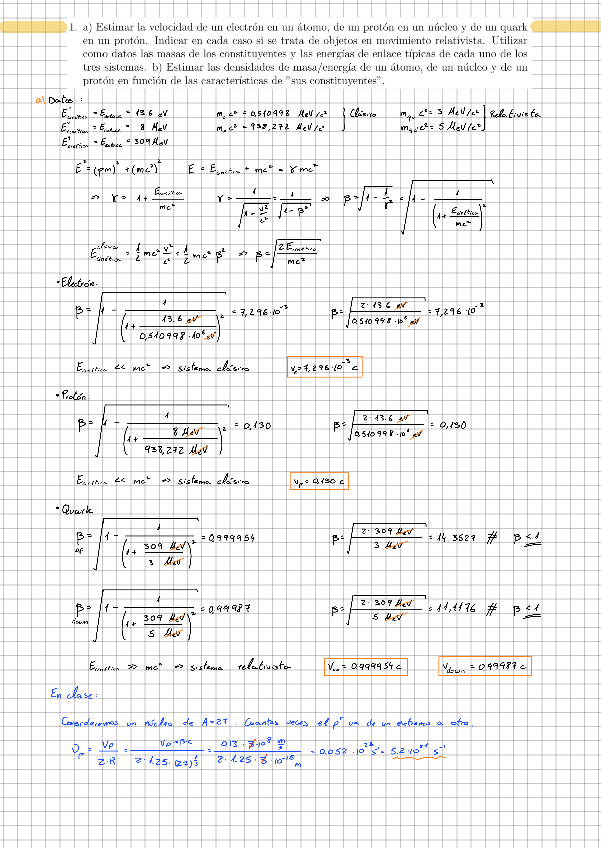 1. a) Estimar la velocidad de un electrón en un átomo, de un protón en un núcleo y de un quark
en un protón. Indicar en cada caso si se trata de objetos en movimiento relativista. Utilizar
como datos las masas de los constituyentes y las energías de enlace típicas de cada uno de los
tres sistemas. b) Estimar las densidades de masa/energía de un átomo, de un núcleo y de un
protón en función de las características de "sus constituyentes".
a) Datos:
E cinética = E enlace = 13.6 eV    m_e c² = 0,510998 MeV/c² } Clásico    m_qu c² = 3 MeV/c² ] Relativista
E cinética = E enlace = 8 MeV    m_p c² = 938,272 MeV/c²    m_qd c² = 5 MeV/c²
E cinética = E enlace = 309 MeV
E² = (pm)² + (mc²)²    E = E cinética + mc² = γmc²
⇒ γ = 1 + E cinética / mc²    γ = 1/√(1 - v²/c²) = 1/√(1 - β²) ⇒ β = √(1 - 1/γ²) = √(1 - 1/(1 + E cinética/mc²)²)
E clásica cinética = 1/2 mc² v²/c² = 1/2 mc² β² ⇒ β = √(2 E cinética / mc²)
• Electrón:
β = √(1 - 1/(1 + 13.6 eV/0,510998·10⁶ eV)²) = 7,296·10⁻³    β = √(2·13.6 eV/0,510998·10⁶ eV) = 7,296·10⁻³
E cinética << mc² ⇒ sistema clásico    v_e = 7,296·10⁻³ c
• Protón:
β = √(1 - 1/(1 + 8 MeV/938,272 MeV)²) = 0,130    β = √(2·13.6 eV/0,510998·10⁶ eV) = 0,130
E cinética << mc² ⇒ sistema clásico    v_p = 0,130 c
• Quark
β up = √(1 - 1/(1 + 309 MeV/3 MeV)²) = 0,999954    β = √(2·309 MeV/3 MeV) = 14,3527 # β < 1
β down = √(1 - 1/(1 + 309 MeV/5 MeV)²) = 0,99987    β = √(2·309 MeV/5 MeV) = 11,1176 # β < 1
E cinética >> mc² ⇒ sistema relativista    V up = 0,999954 c    V down = 0,99987 c
En clase:
Consideremos un núcleo de A=27. Cuantas veces el p⁺ va de un extremo a otro.
ν_p = v_p/2·R = v_p = β·c/2·1.25·(27)^1/3 = 0.13·3·10⁸ m/s / 2·1.25·3·10⁻¹⁵ m = 0.052·10²³ s⁻¹ = 5.2·10²¹ s⁻¹